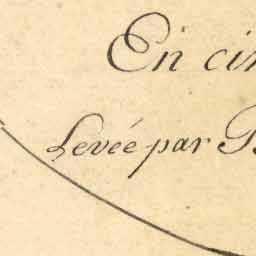 En cin
Levée par